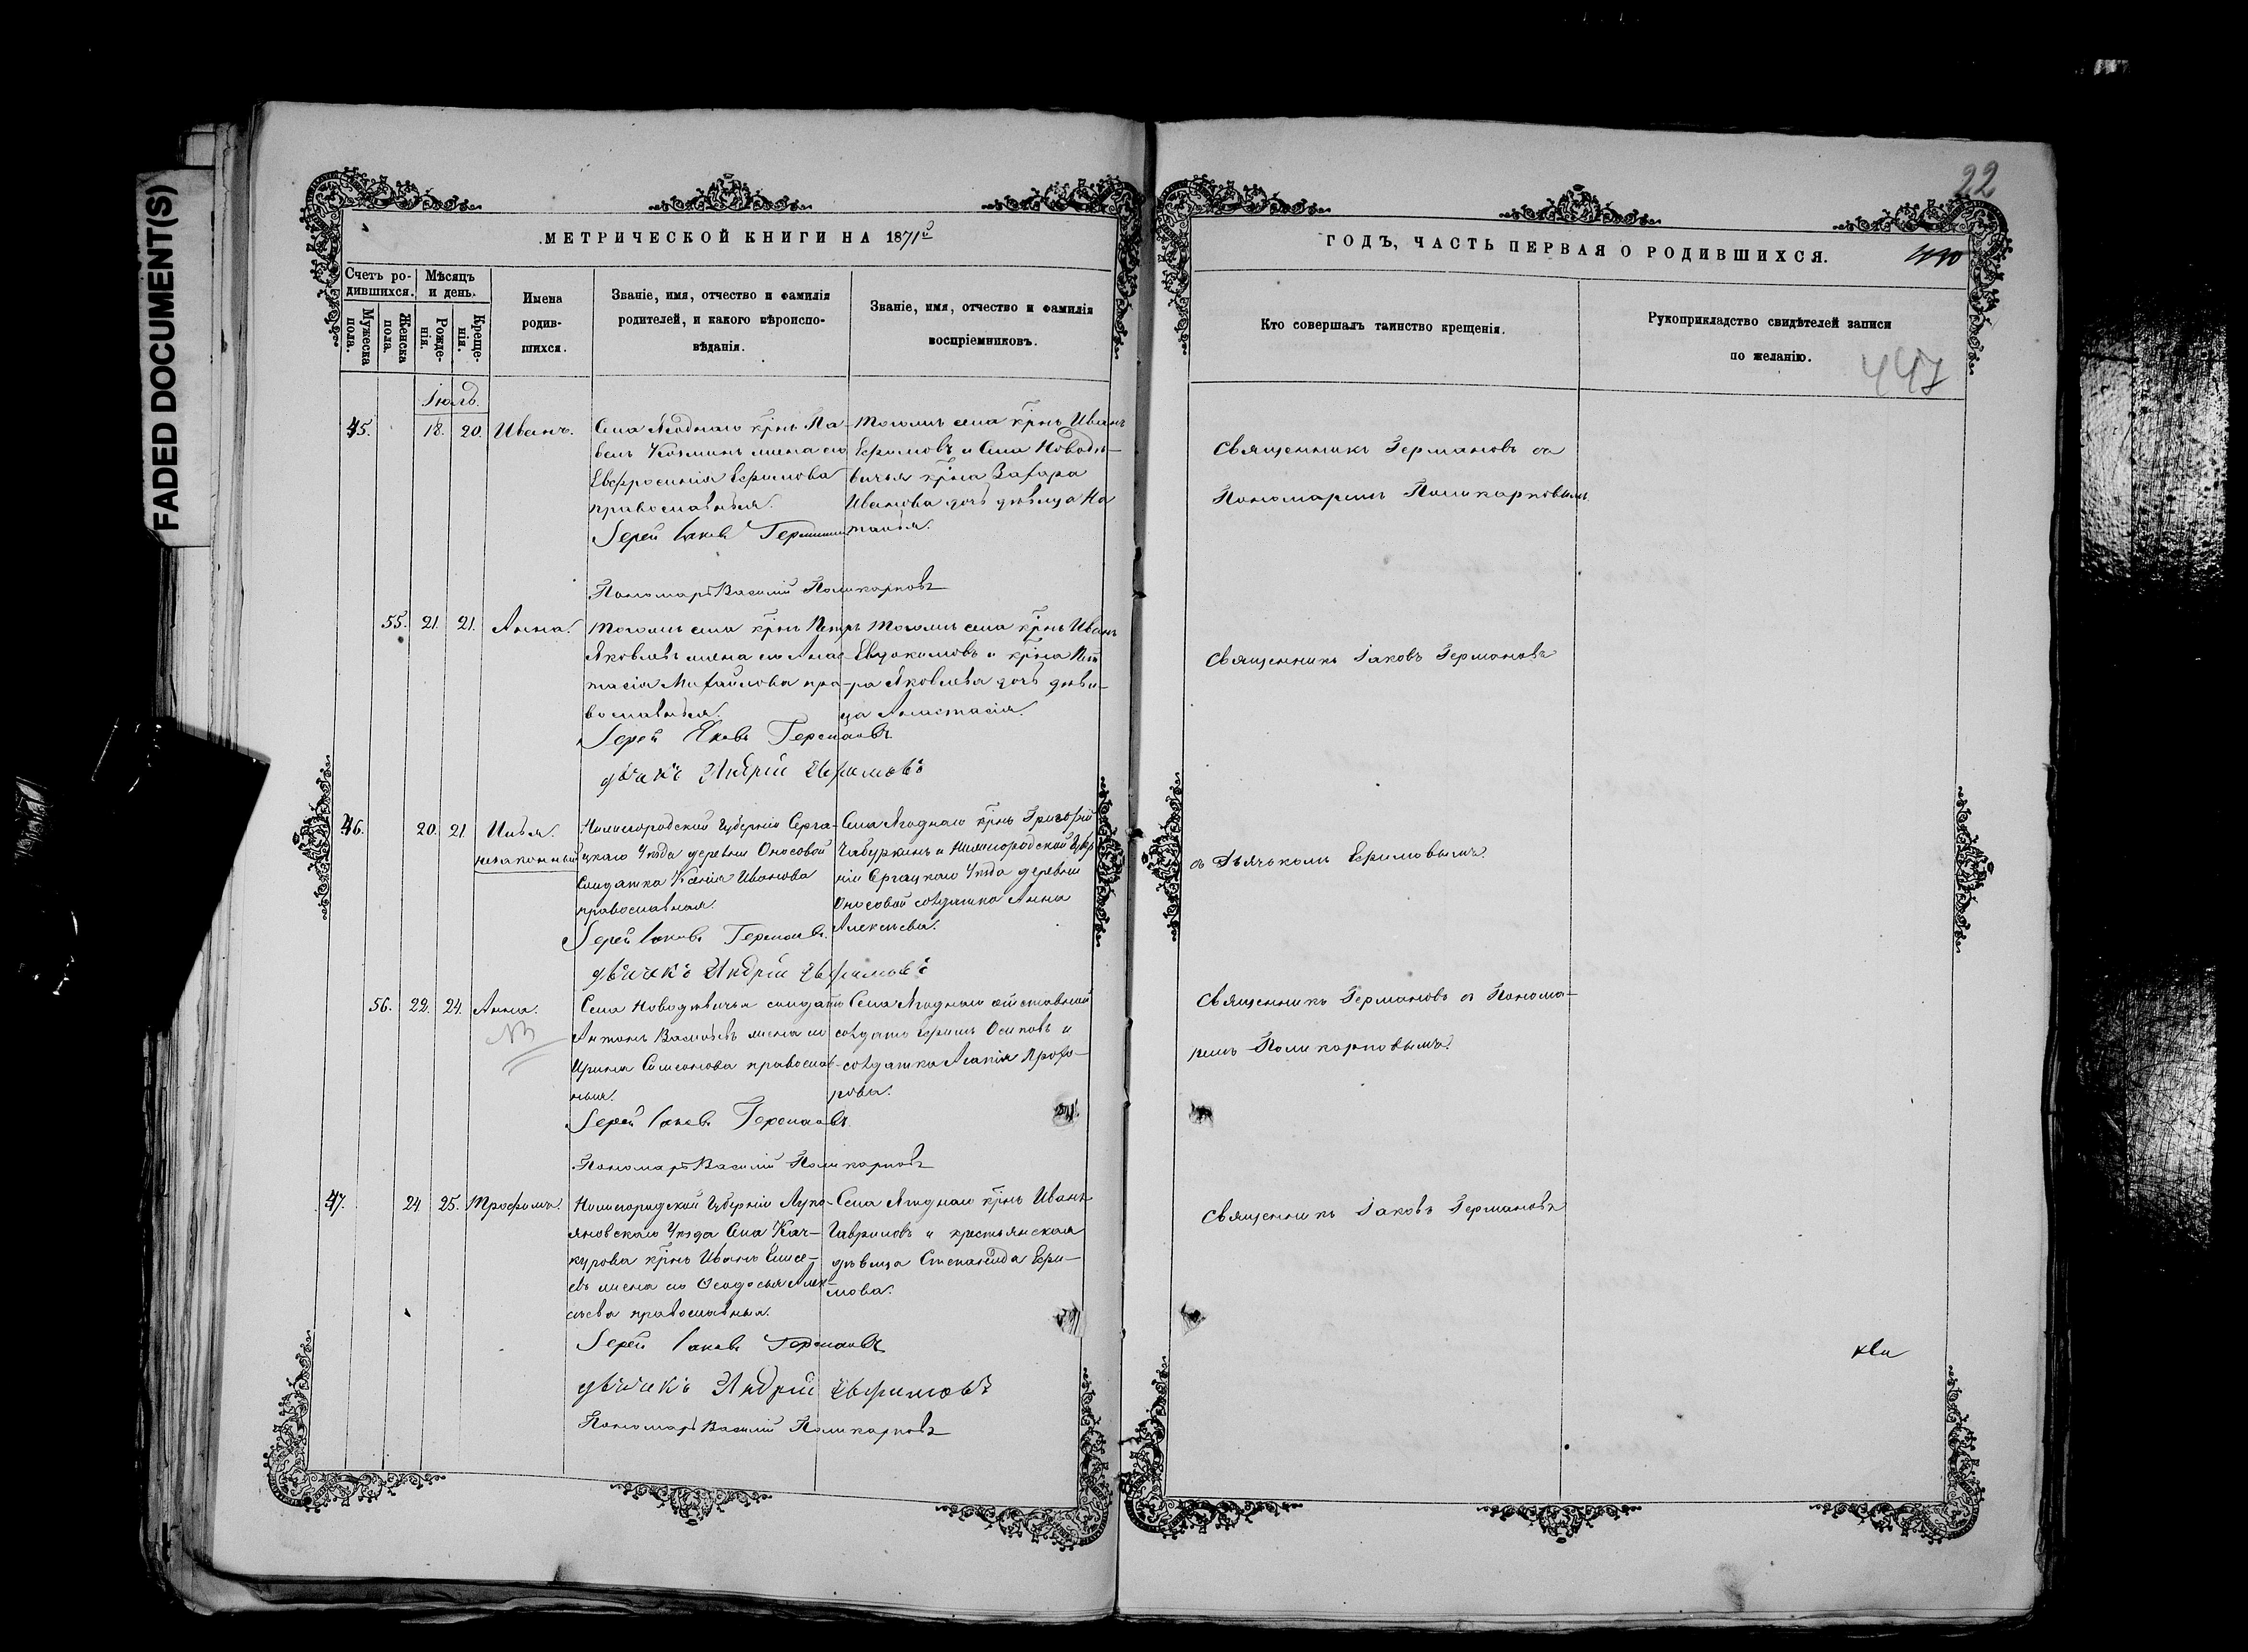 FADED DOCUMENT(S)
22
МЕТРИЧЕСКОЙ КНИГИ НА 1871й
Счетъ ро-
дившихся.
Мужеска
пола.
Женска
пола.
Мѣсяцъ
и день.
Рожде-
нія.
Креще-
нія.
Имена
родив-
шихся.
Званіе, имя, отчество и фамилія
родителей, и какого вѣроиспо-
вѣданія.
Званіе, имя, отчество и фамилія
воспріемниковъ.
ГОДЪ, ЧАСТЬ ПЕРВАЯ О РОДИВШИХСЯ.
Кто совершалъ таинство крещенія.
Рукоприкладство свидѣтелей записи
по желанію.
447
Іюль.
45. 18. 20. Иванъ.
Села Ягоднаго крнъ Па-
велъ Козминъ жена его
Евфросинія Ефимова
православныя.
Іерей Іаковъ Германовъ
Пономарь Василій Поликарповъ
Тогожъ села крнъ Иванъ
Ефимовъ и Села Новодѣ-
вичья крна Захара
Иванова дочь дѣвица На
талья.
Священникъ Германовъ съ
Пономаремъ Поликарповымъ.
55. 21. 21. Анна.
Тогожъ села крнъ Петръ
Яковлевъ жена его Анас-
тасія Михайлова пра-
вославныя.
Іерей Яковъ Германовъ
дьячекъ Андрей Ефимовъ
Тогожъ села крнъ Иванъ
Евдокимовъ и крна Пет
ра Яковлева дочь дѣви-
ца Анастасія.
Священникъ Іаковъ Германовъ
46. 20. 21. Илья.
незаконный
Нижегородской Губерніи Серга-
цкаго Уѣзда деревни Оносовой
Солдатка Ксенія Иванова
православная.
Іерей Іаковъ Германовъ.
дьячекъ Андрей Ефимовъ
Села Ягоднаго крнъ Григорій
Чабуркинъ и Нижегородской Губер
ніи Сергацкаго Уѣзда деревни
Оносовой солдатка Анна
Алексѣева.
съ Дьячкомъ Ефимовымъ.
56. 22. 24. Анна.
NB
Села Новодѣвичья солдатъ
Антонъ Васильевъ жена его
Ирина Самсонова православ-
ныя.
Іерей Іаковъ Германовъ.
Пономарь Василій Поликарповъ
Села Ягоднаго отставной
солдатъ Ефимъ Осиповъ и
солдатка Агапія Прохо-
рова.
Священникъ Германовъ съ Понома-
ремъ Поликарповымъ.
47. 24. 25. Трофимъ.
Нижегородской Губерніи Луко-
яновскаго Уѣзда Села Кач-
курова крнъ Иванъ Елисе-
евъ жена его Ѳеодосья Алек-
сѣева православныя.
Іерей Іаковъ Германовъ
дьячекъ Андрей Ефимовъ
Пономарь Василій Поликарповъ
Села Ягоднаго крнъ Иванъ
Гавриловъ и крестьянская
дѣвица Степанида Ефи-
мова.
Священникъ Іаковъ Германовъ